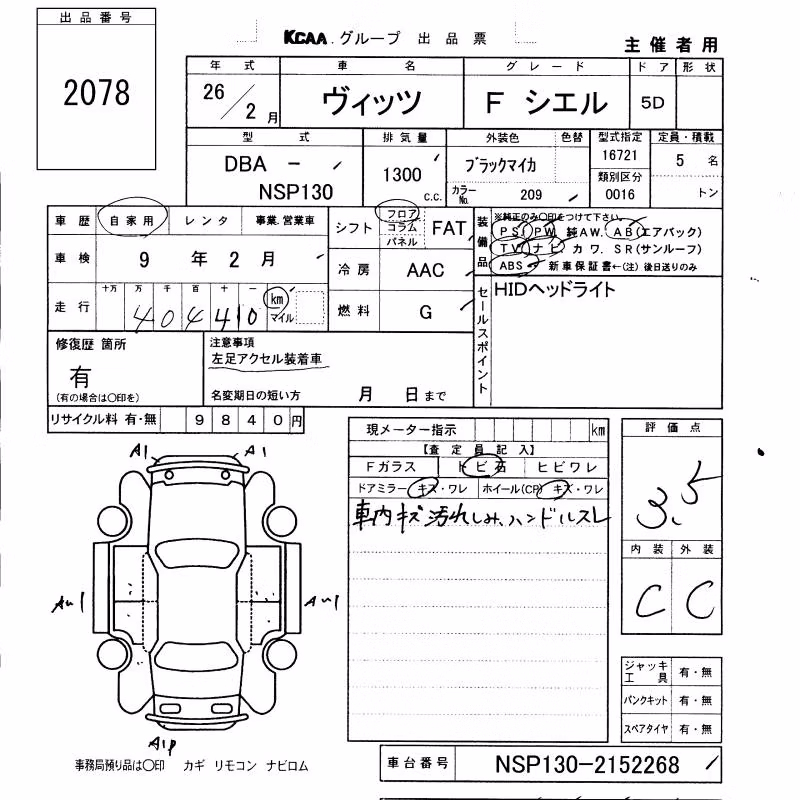 出品番号
2078
KCAA グループ 出品票
主催者用
年式 車名 グレード ドア 形状
26/2月 ヴィッツ F シエル 5D
型式 排気量 外装色 色替 型式指定 定員・積載
DBA - NSP130 1300 c.c. ブラックマイカ 16721 5 名
カラーNo. 209 類別区分 0016 トン
車歴 自家用 レンタ 事業.営業車
シフト フロア コラム パネル FAT
装備品 ※純正のみ〇印をつけて下さい。
PS PW 純AW. AB(エアバック)
TV ナビ カワ. SR(サンルーフ)
ABS 新車保証書←(注)後日送りのみ
車検 9年2月
冷房 AAC
走行 十万 万 千 百 十 一
40410 km マイル
燃料 G
セールスポイント HIDヘッドライト
修復歴 箇所
有
(有の場合は〇印を)
注意事項
左足アクセル装着車
名変期日の短い方 月 日まで
リサイクル料 有・無 9840円
現メーター指示 km
【査定員記入】
Fガラス トビ石 ヒビワレ
ドアミラー キズ・ワレ ホイール(CP) キズ・ワレ
車内キズ汚れしみ、ハンドルスレ
評価点
3.5
内装 外装
C C
A1 A1
A1
ジャッキ工具 有・無
パンクキット 有・無
スペアタイヤ 有・無
事務局預り品は〇印 カギ リモコン ナビロム
車台番号 NSP130-2152268